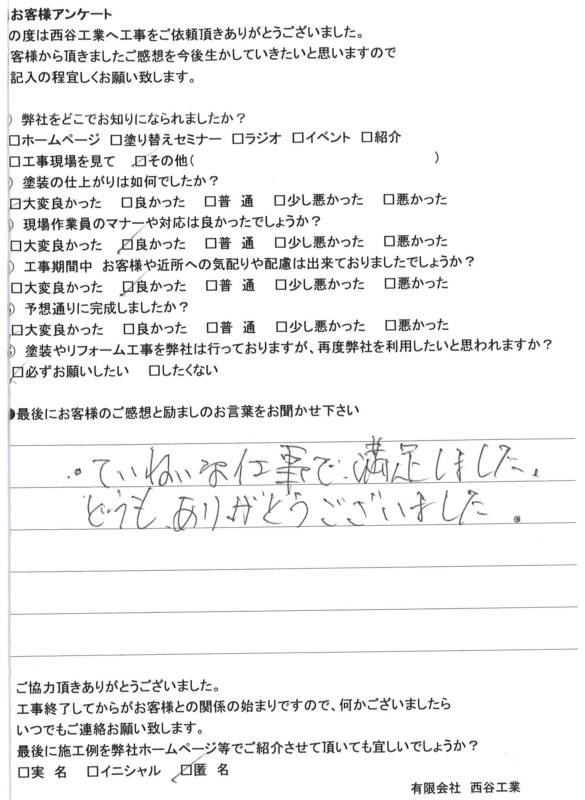 お客様アンケート
の度は西谷工業へ工事をご依頼頂きありがとうございました。
客様から頂きましたご感想を今後生かしていきたいと思いますので
記入の程宜しくお願い致します。
) 弊社をどこでお知りになられましたか？
□ホームページ □塗り替えセミナー □ラジオ □イベント □紹介
□工事現場を見て ☑その他( )
) 塗装の仕上がりは如何でしたか？
☑大変良かった □良かった □普 通 □少し悪かった □悪かった
) 現場作業員のマナーや対応は良かったでしょうか？
□大変良かった ☑良かった □普 通 □少し悪かった □悪かった
) 工事期間中 お客様や近所への気配りや配慮は出来ておりましたでしょうか？
□大変良かった ☑良かった □普 通 □少し悪かった □悪かった
) 予想通りに完成しましたか？
☑大変良かった □良かった □普 通 □少し悪かった □悪かった
) 塗装やリフォーム工事を弊社は行っておりますが、再度弊社を利用したいと思われますか？
☑必ずお願いしたい □したくない
●最後にお客様のご感想と励ましのお言葉をお聞かせ下さい
・ていねいな仕事で、満足しました。
どうも、ありがとうございました。
ご協力頂きありがとうございました。
工事終了してからがお客様との関係の始まりですので、何かございましたら
いつでもご連絡お願い致します。
最後に施工例を弊社ホームページ等でご紹介させて頂いても宜しいでしょうか？
□実 名 □イニシャル ☑匿 名
有限会社 西谷工業